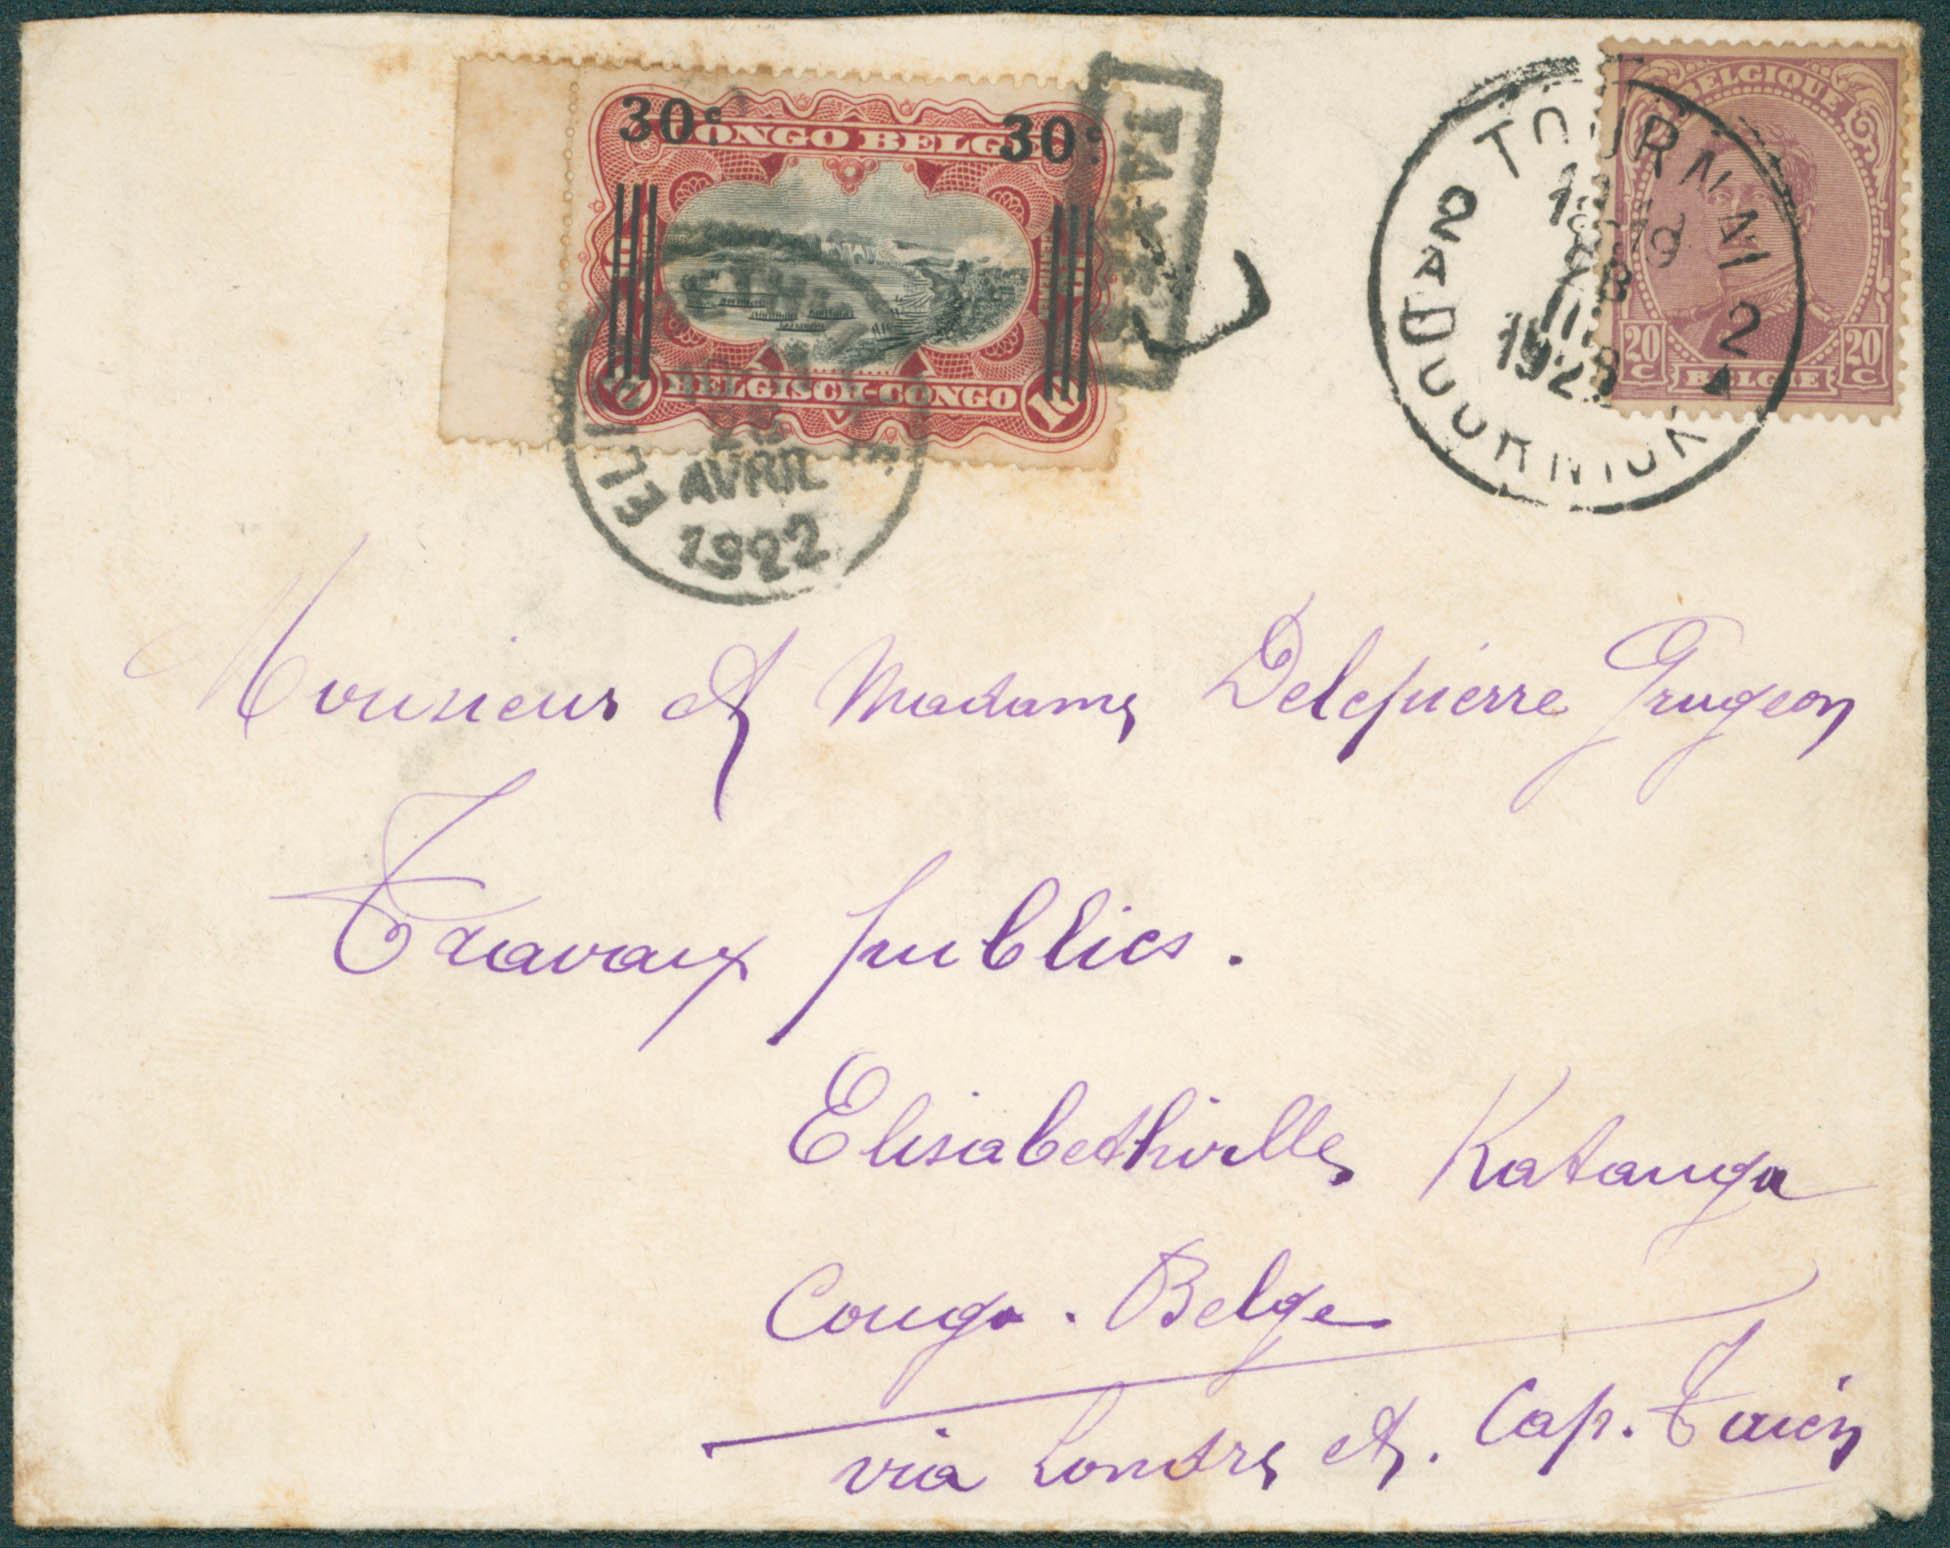 30c 30c
CONGO BELGE
BELGISCH-CONGO
10 10
TAXE
AVRIL
1922
TOURNAI 2
2A DOORNIK
BELGIQUE
20 C 20 C
BELGIE
Monsieur et Madame Delepierre Grugeon
Travaux publics.
Elisabethville Katanga
Congo. Belge
via Londres et. Cap. Town